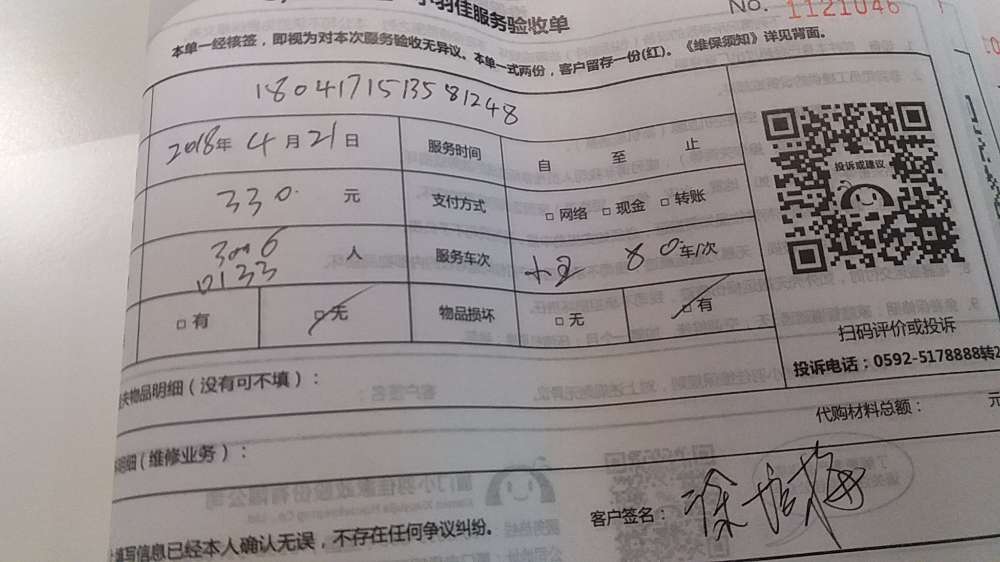 小羽佳服务验收单
No. 1121046
本单一经核签，即视为对本次服务验收无异议。本单一式两份，客户留存一份(红)。《维保须知》详见背面。
1804171513581248
2018年 4 月 21 日 服务时间 自 至 止
330 元 支付方式 □ 网络 □ 现金 □ 转账
3006 人 服务车次 80 车/次
0133
□ 有 □ 无 物品损坏 □ 无 □ 有
投诉或建议
扫码评价或投诉
投诉电话：0592-5178888转2
物品明细（没有可不填）：
代购材料总额： 元
明细（维修业务）：
客户签名：
填写信息已经本人确认无误，不存在任何争议纠纷。